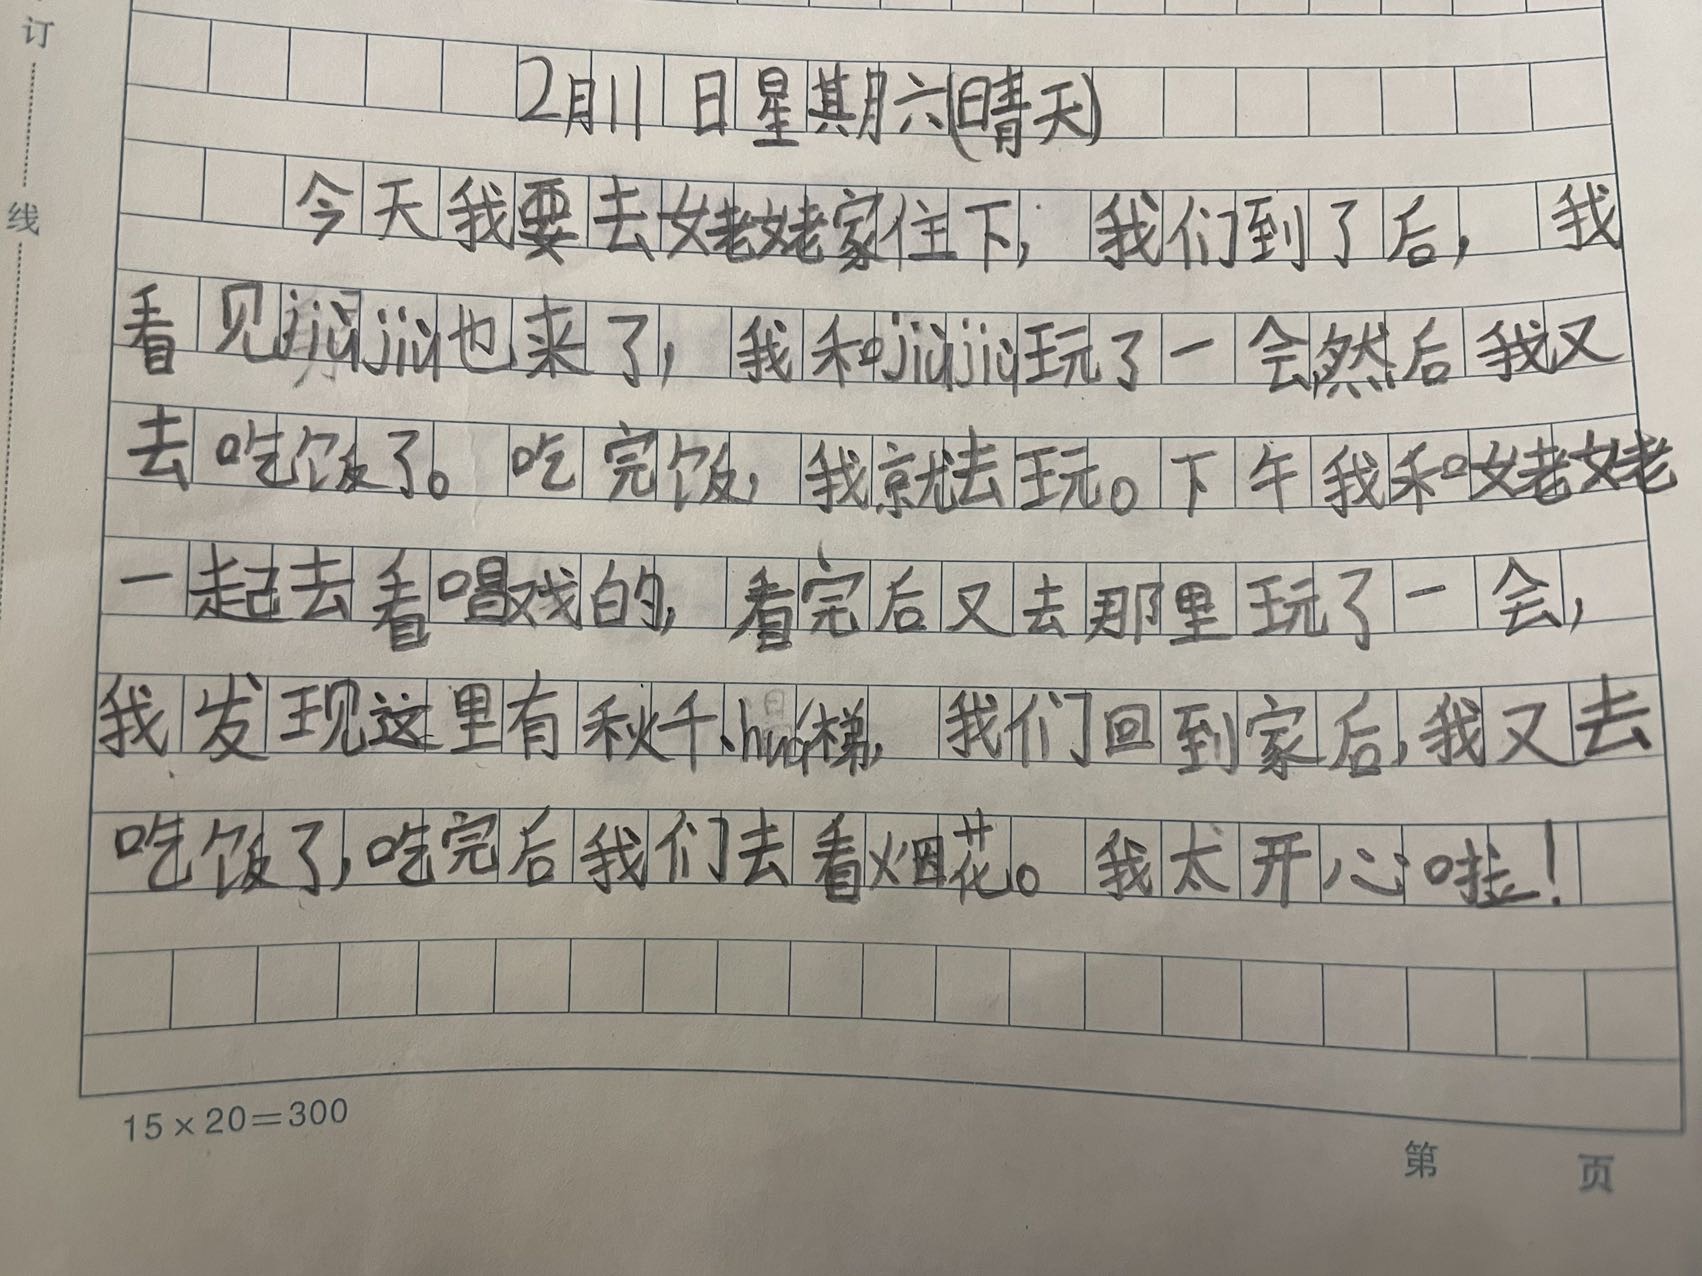 订
线
2月11日星期六(晴天)
今天我要去姥姥家住下,我们到了后,我
看见jiùjiu也来了,我和jiùjiu玩了一会,然后我又
去吃饭了。吃完饭,我就去玩。下午我和姥姥
一起去看唱戏的,看完后又去那里玩了一会,
我发现这里有秋千、huá梯,我们回到家后,我又去
吃饭了,吃完后我们去看烟花。我太开心啦!
15×20=300
第 页